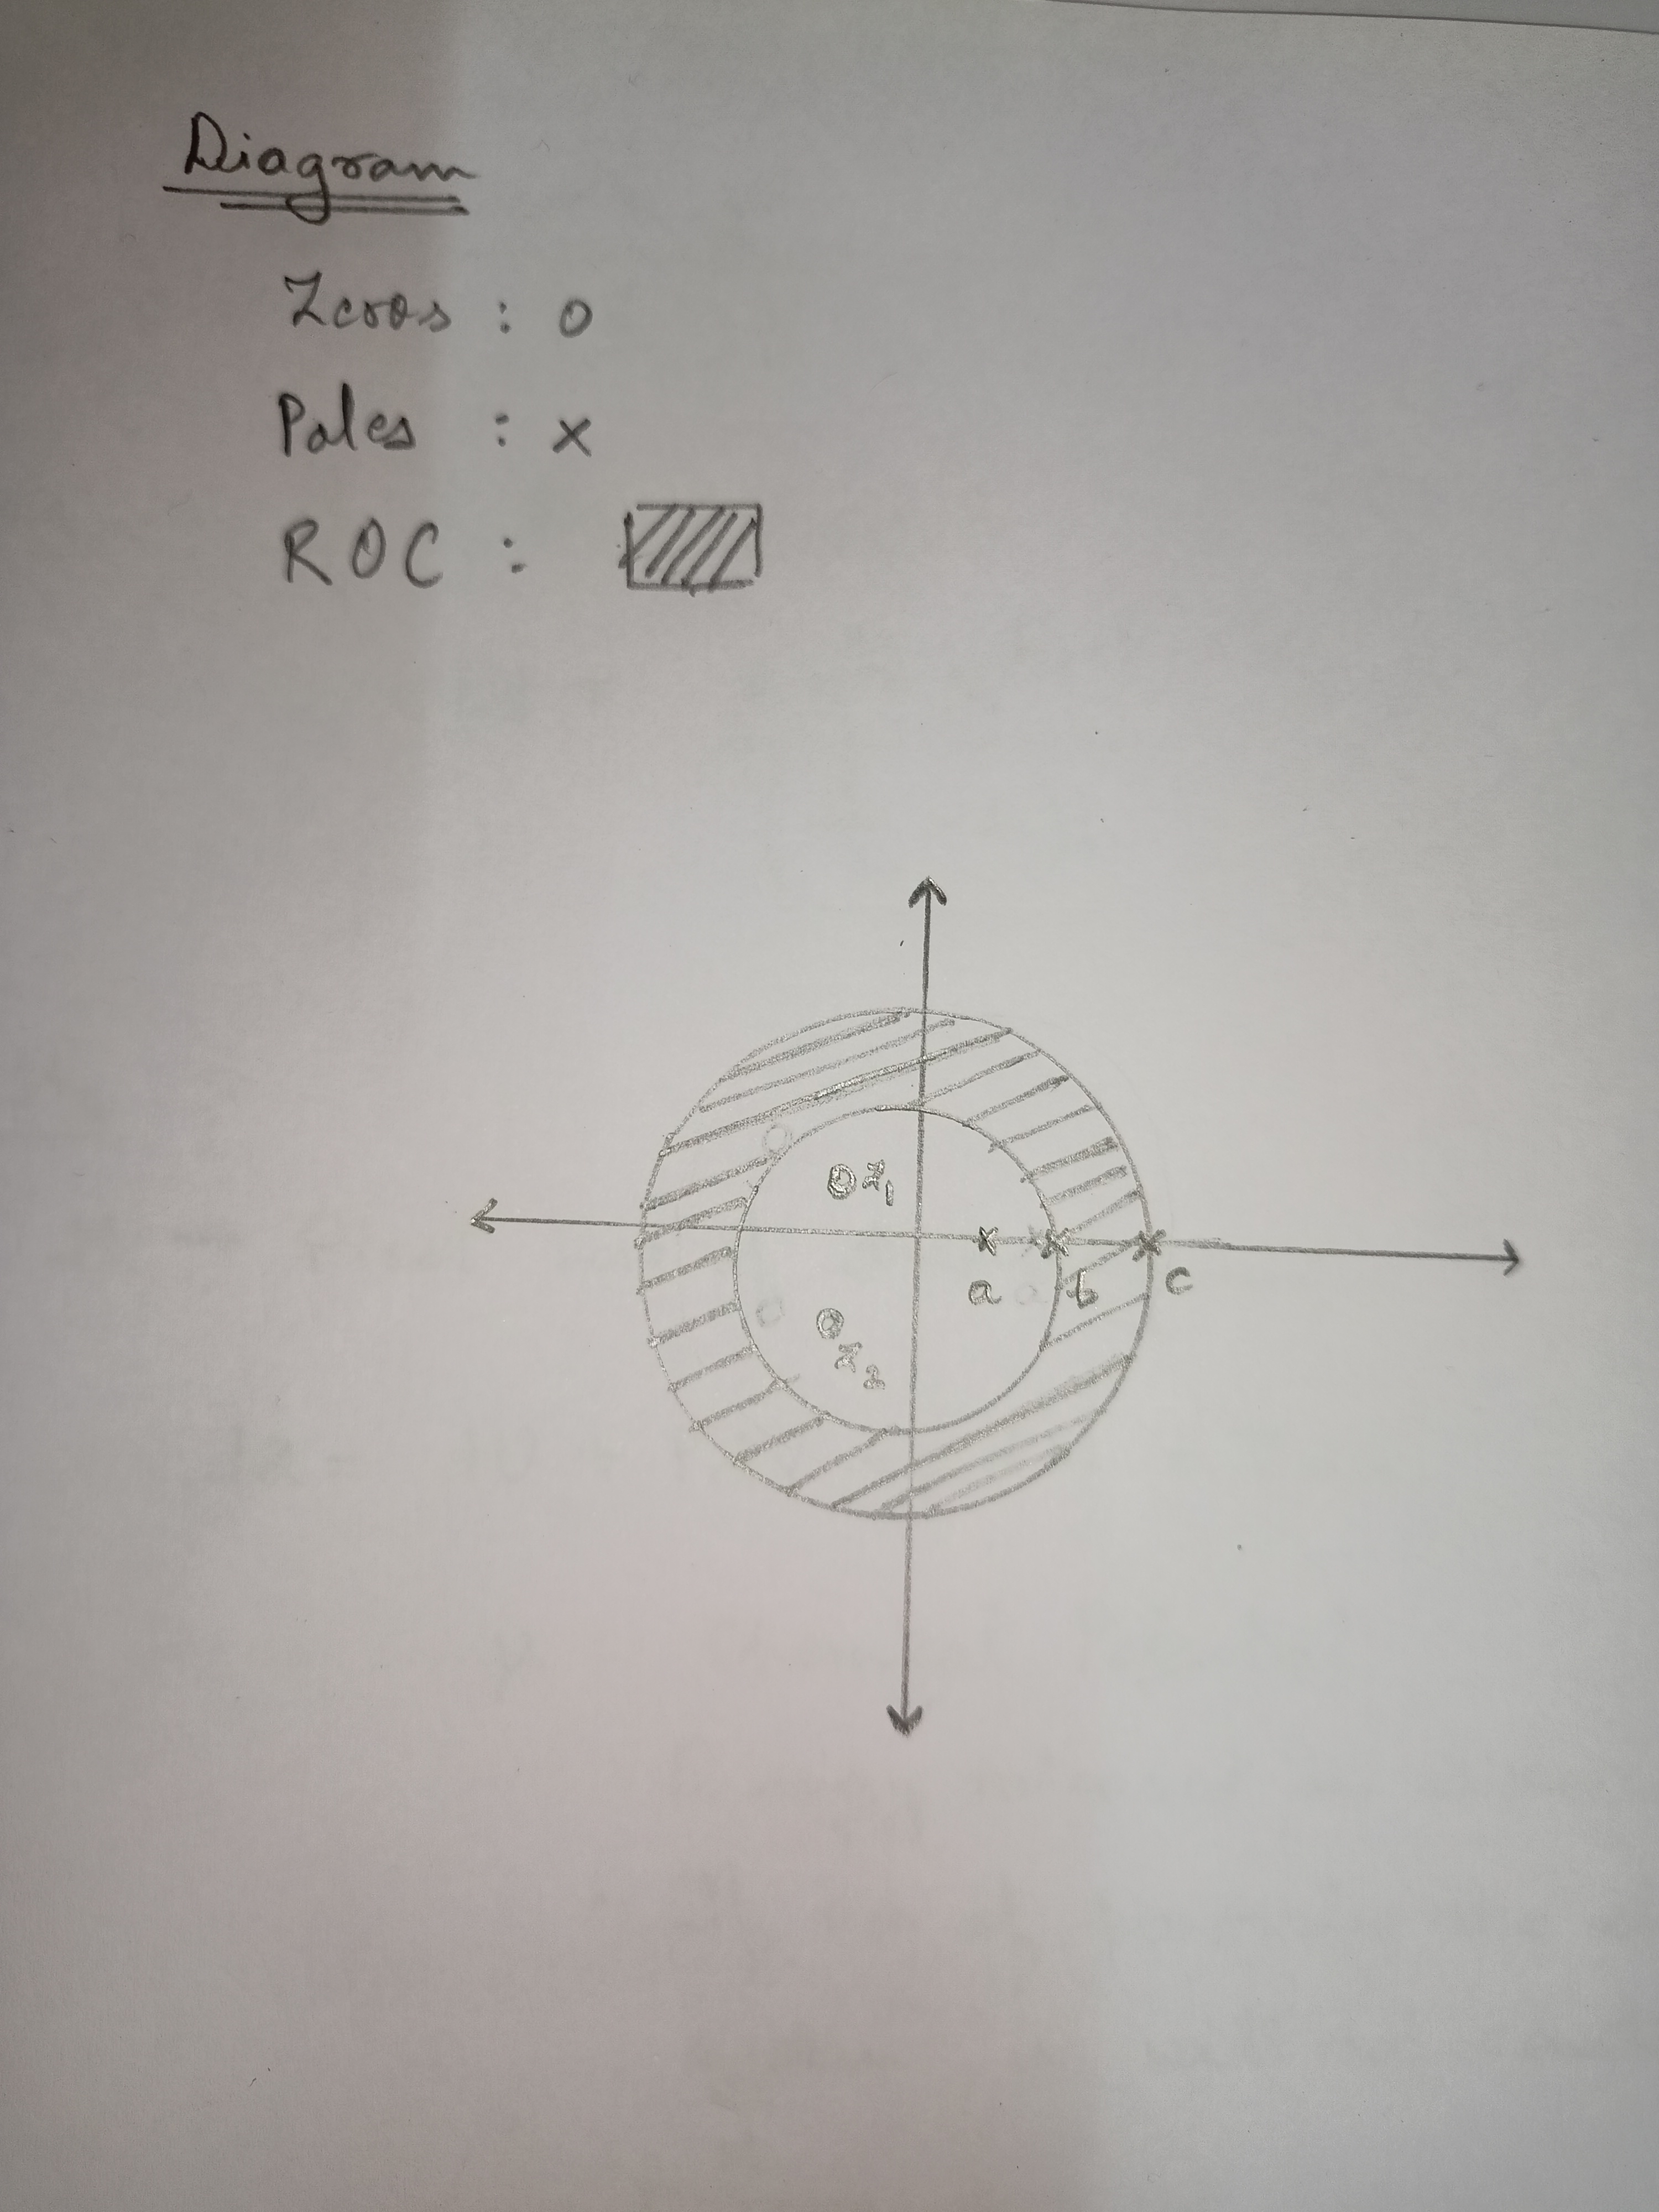 Diagram
Zeros : o
Poles : x
ROC :
z1
a b c
z2